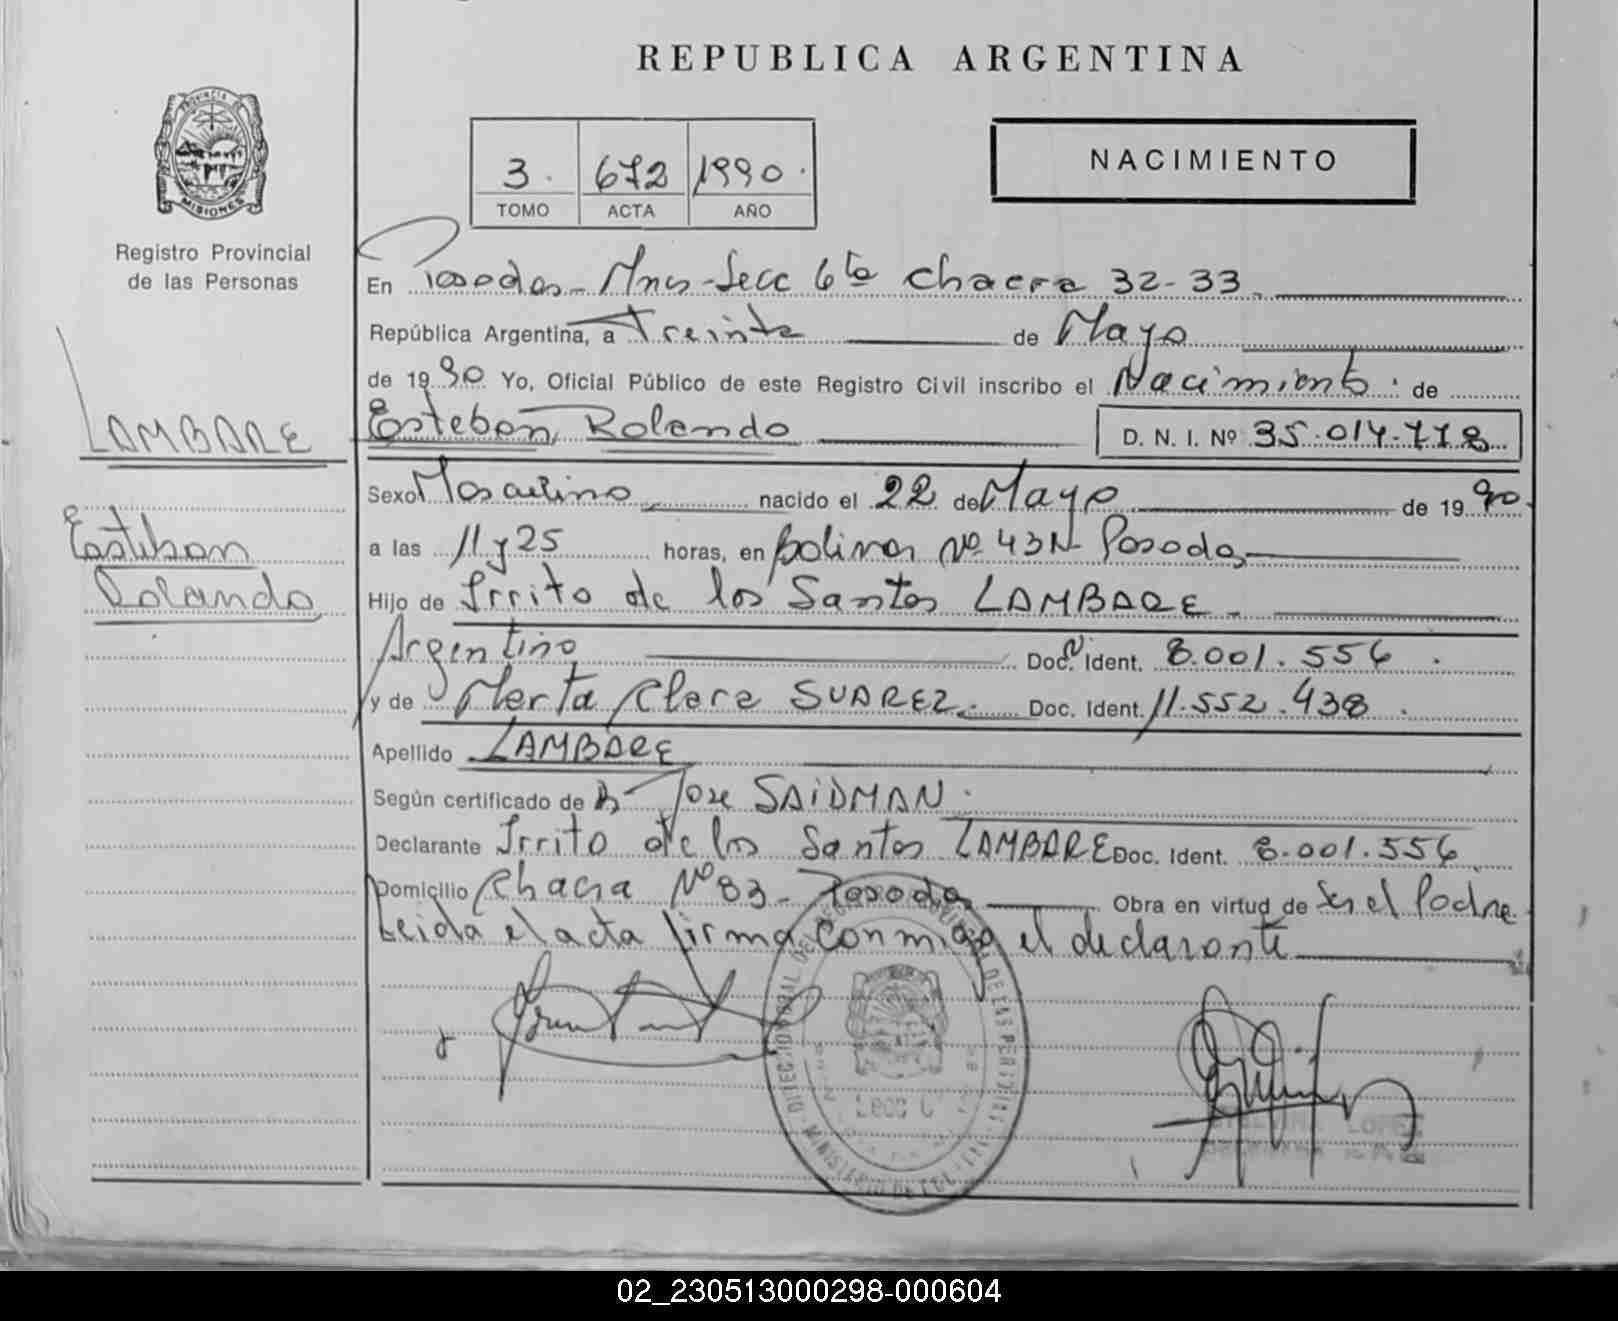 REPUBLICA ARGENTINA
PROVINCIA DE
MISIONES
Registro Provincial
de las Personas
3. 672 1990.
TOMO ACTA AÑO
NACIMIENTO
En Posadas - Mnes - Secc 6ta Chacra 32-33.
República Argentina, a Treinta de Mayo
de 1990 Yo, Oficial Público de este Registro Civil inscribo el Nacimiento de
LAMBARE
Esteban Rolando D. N. I. Nº 35.014.778
Sexo Masculino nacido el 22 de Mayo de 1990.
Esteban
Rolando
a las 11 y 25 horas, en Bolivar Nº 43N- Posadas
Hijo de Irrito de los Santos LAMBARE -
Argentino Doc. Ident. 8.001.556 .
y de Marta Clara SUAREZ. Doc. Ident. 11.552.438 .
Apellido LAMBARE
Según certificado de Dr Jose SAIDMAN .
Declarante Irrito de los Santos LAMBARE Doc. Ident. 8.001.556
Domicilio Chacra Nº 83 - Posadas Obra en virtud de Ser el Padre
Leida el acta firma conmigo el declarante
LOPEZ
02_230513000298-000604